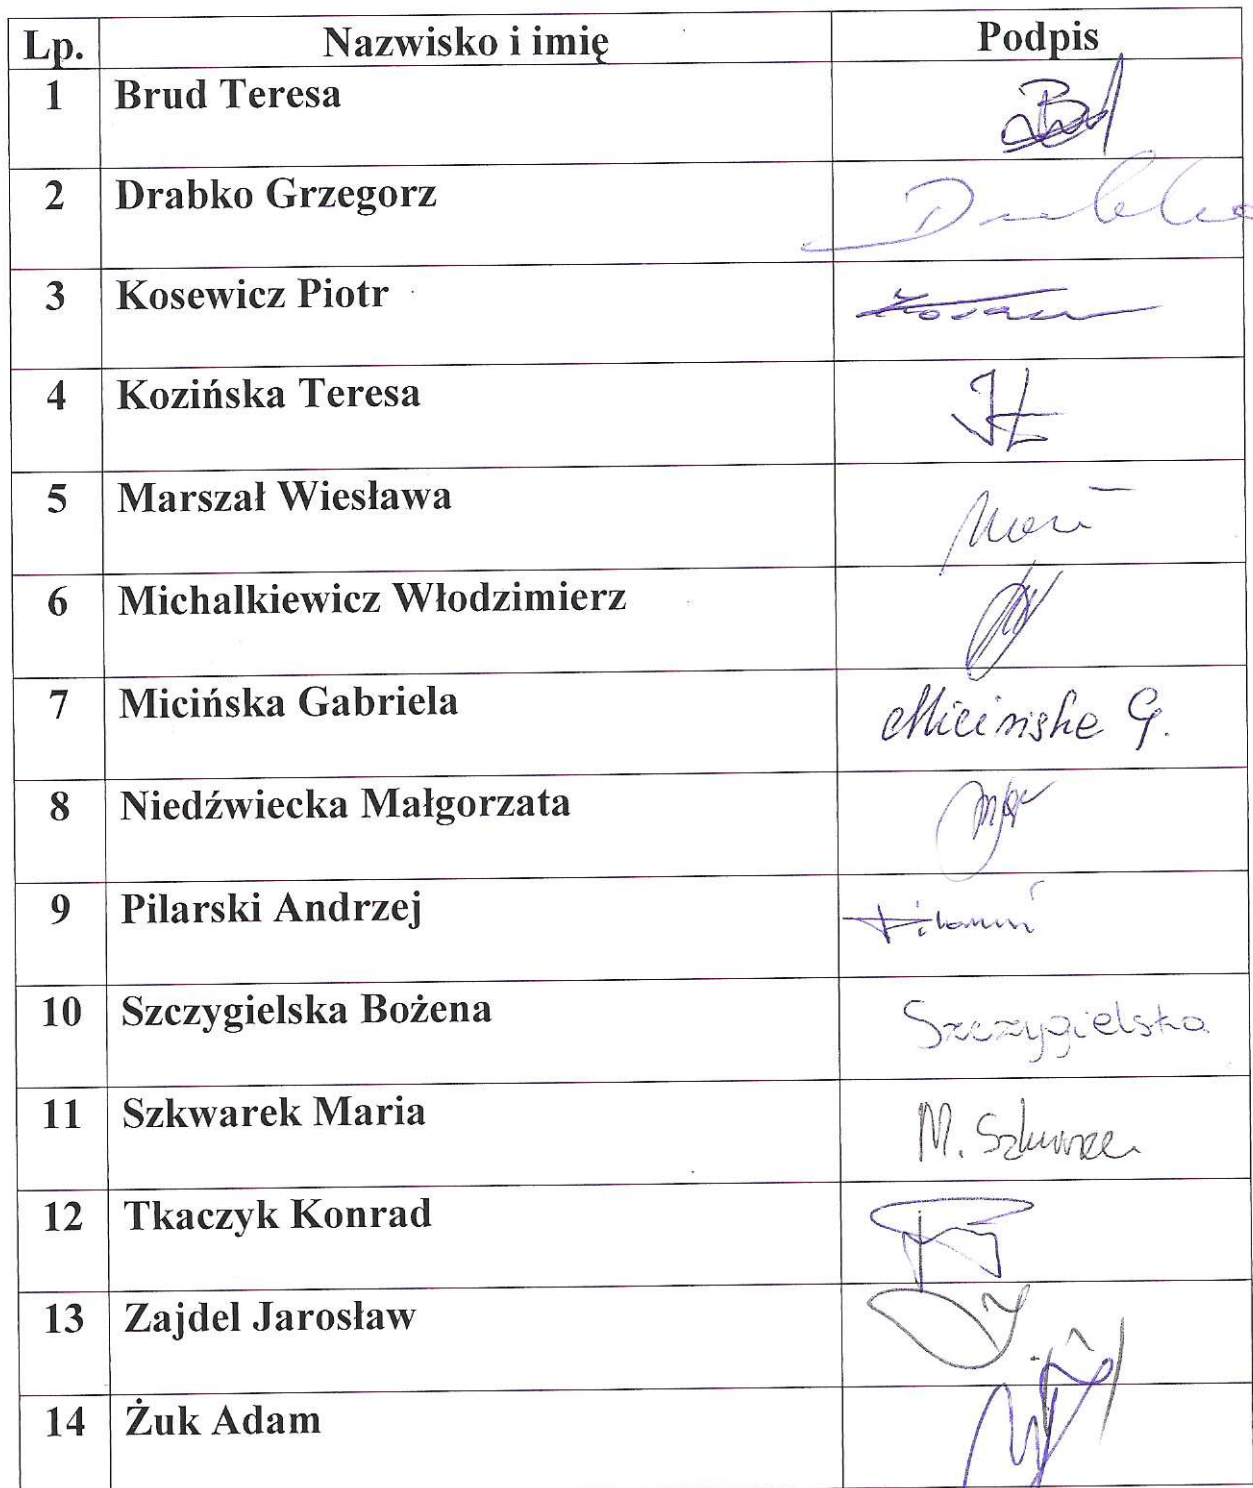 Lp. Nazwisko i imię Podpis
1 Brud Teresa
2 Drabko Grzegorz Drabko
3 Kosewicz Piotr
4 Kozińska Teresa
5 Marszał Wiesława
6 Michalkiewicz Włodzimierz
7 Micińska Gabriela Micińska G.
8 Niedźwiecka Małgorzata
9 Pilarski Andrzej
10 Szczygielska Bożena Szczygielska
11 Szkwarek Maria M. Szkwarek
12 Tkaczyk Konrad
13 Zajdel Jarosław
14 Żuk Adam